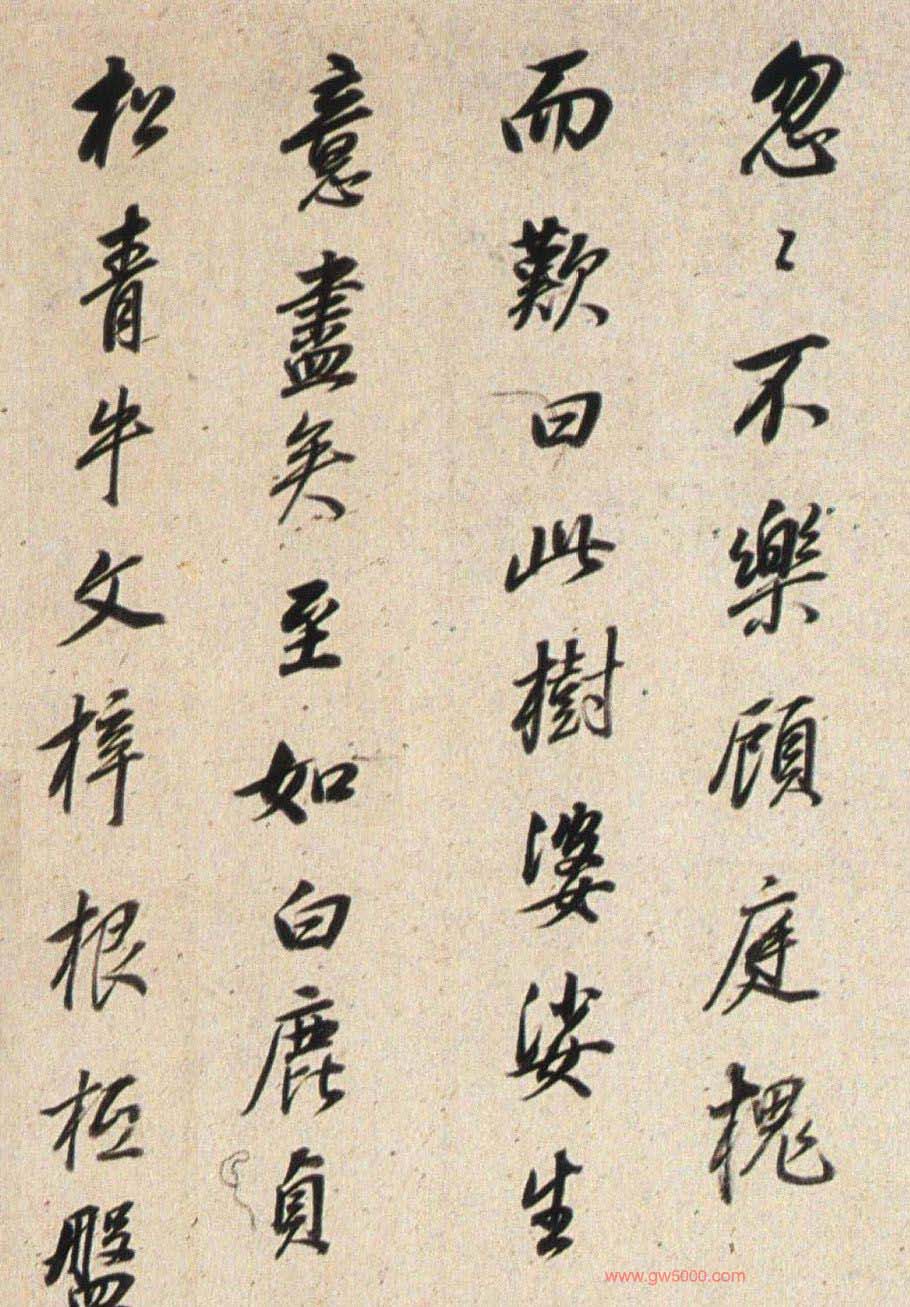 忽〻不樂顧庭槐
而歎曰此樹婆娑生
意盡矣至如白鹿貞
松青牛文梓根柢盤
www.gw5000.com